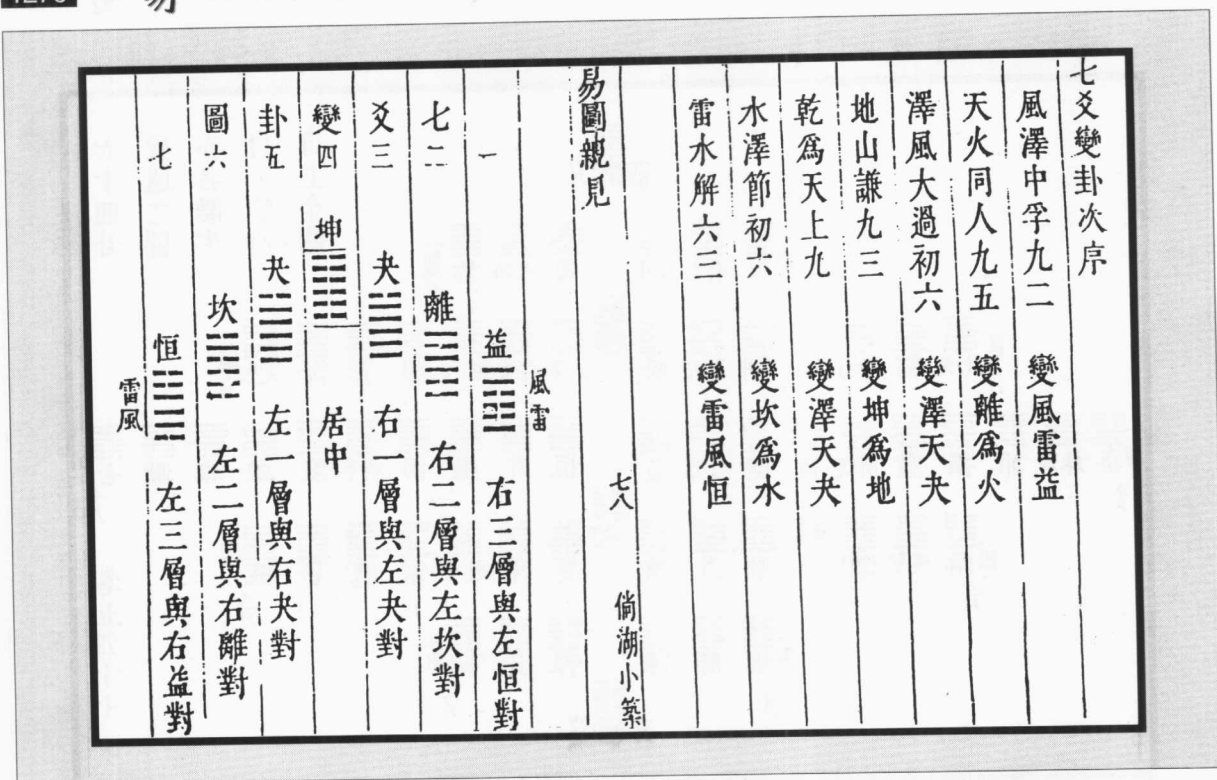 七爻變卦次序
風澤中孚九二　變風雷益
天火同人九五　變離爲火
澤風大過初六　變澤天夬
地山謙九三　變坤爲地
乾爲天上九　變澤天夬
水澤節初六　變坎爲水
雷水解六三　變雷風恒
七八　倘湖小築
易圖親見
風雷
一　益　右三層與左恒對
七二　離　右二層與左坎對
爻三　夬　右一層與左夬對
變四　坤　居中
卦五　夬　左一層與右夬對
圖六　坎　左二層與右離對
七　恒　左三層與右益對
雷風